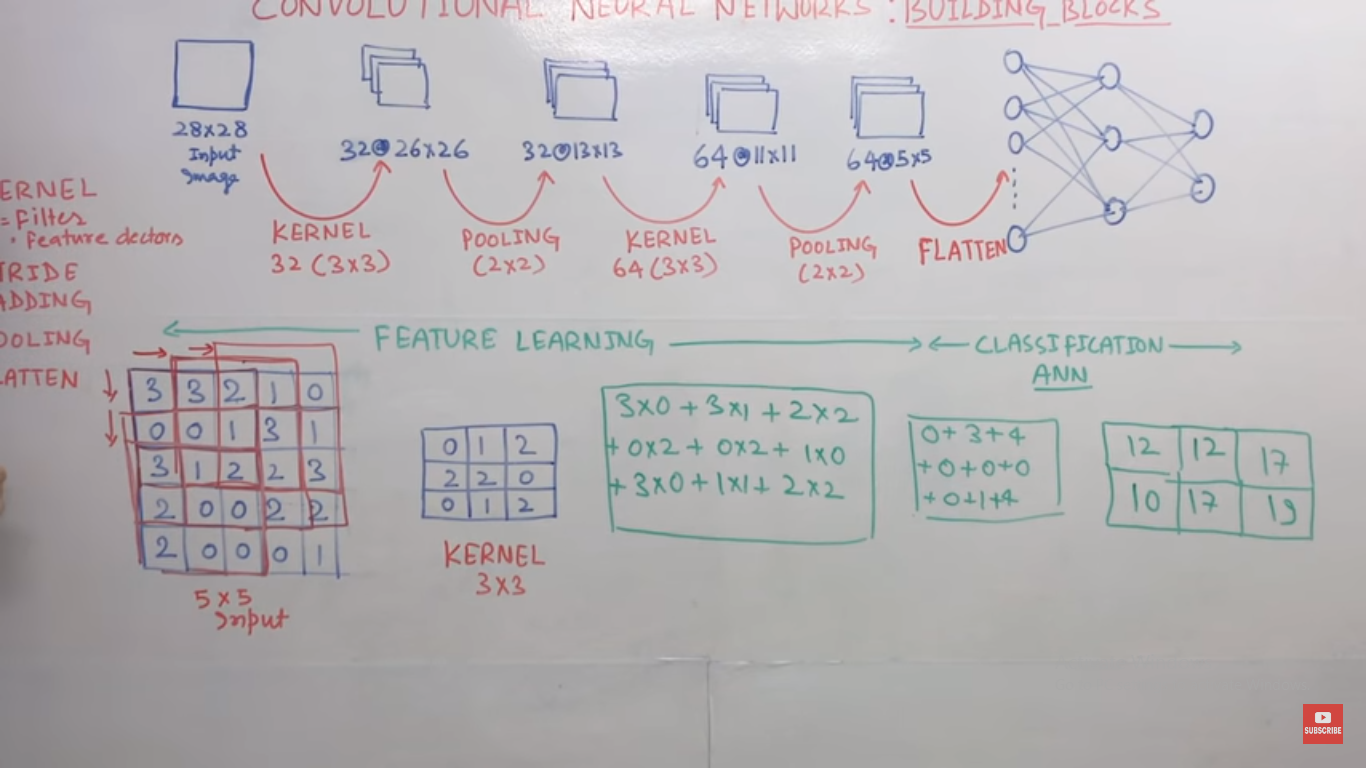 CONVOLUTIONAL NEURAL NETWORKS : BUILDING BLOCKS
28x28
Input
Image
32@26x26
32@13x13
64@11x11
64@5x5
KERNEL
32 (3x3)
POOLING
(2x2)
KERNEL
64 (3x3)
POOLING
(2x2)
FLATTEN
ERNEL
= Filter
. Feature dectors
TRIDE
ADDING
OOLING
LATTEN
FEATURE LEARNING
CLASSIFICATION
ANN
3 3 2 1 0
0 0 1 3 1
3 1 2 2 3
2 0 0 2 2
2 0 0 0 1
5x5
Input
0 1 2
2 2 0
0 1 2
KERNEL
3x3
3x0 + 3x1 + 2x2
+ 0x2 + 0x2 + 1x0
+ 3x0 + 1x1 + 2x2
0+3+4
+0+0+0
+0+1+4
12 12 17
10 17 19
SUBSCRIBE